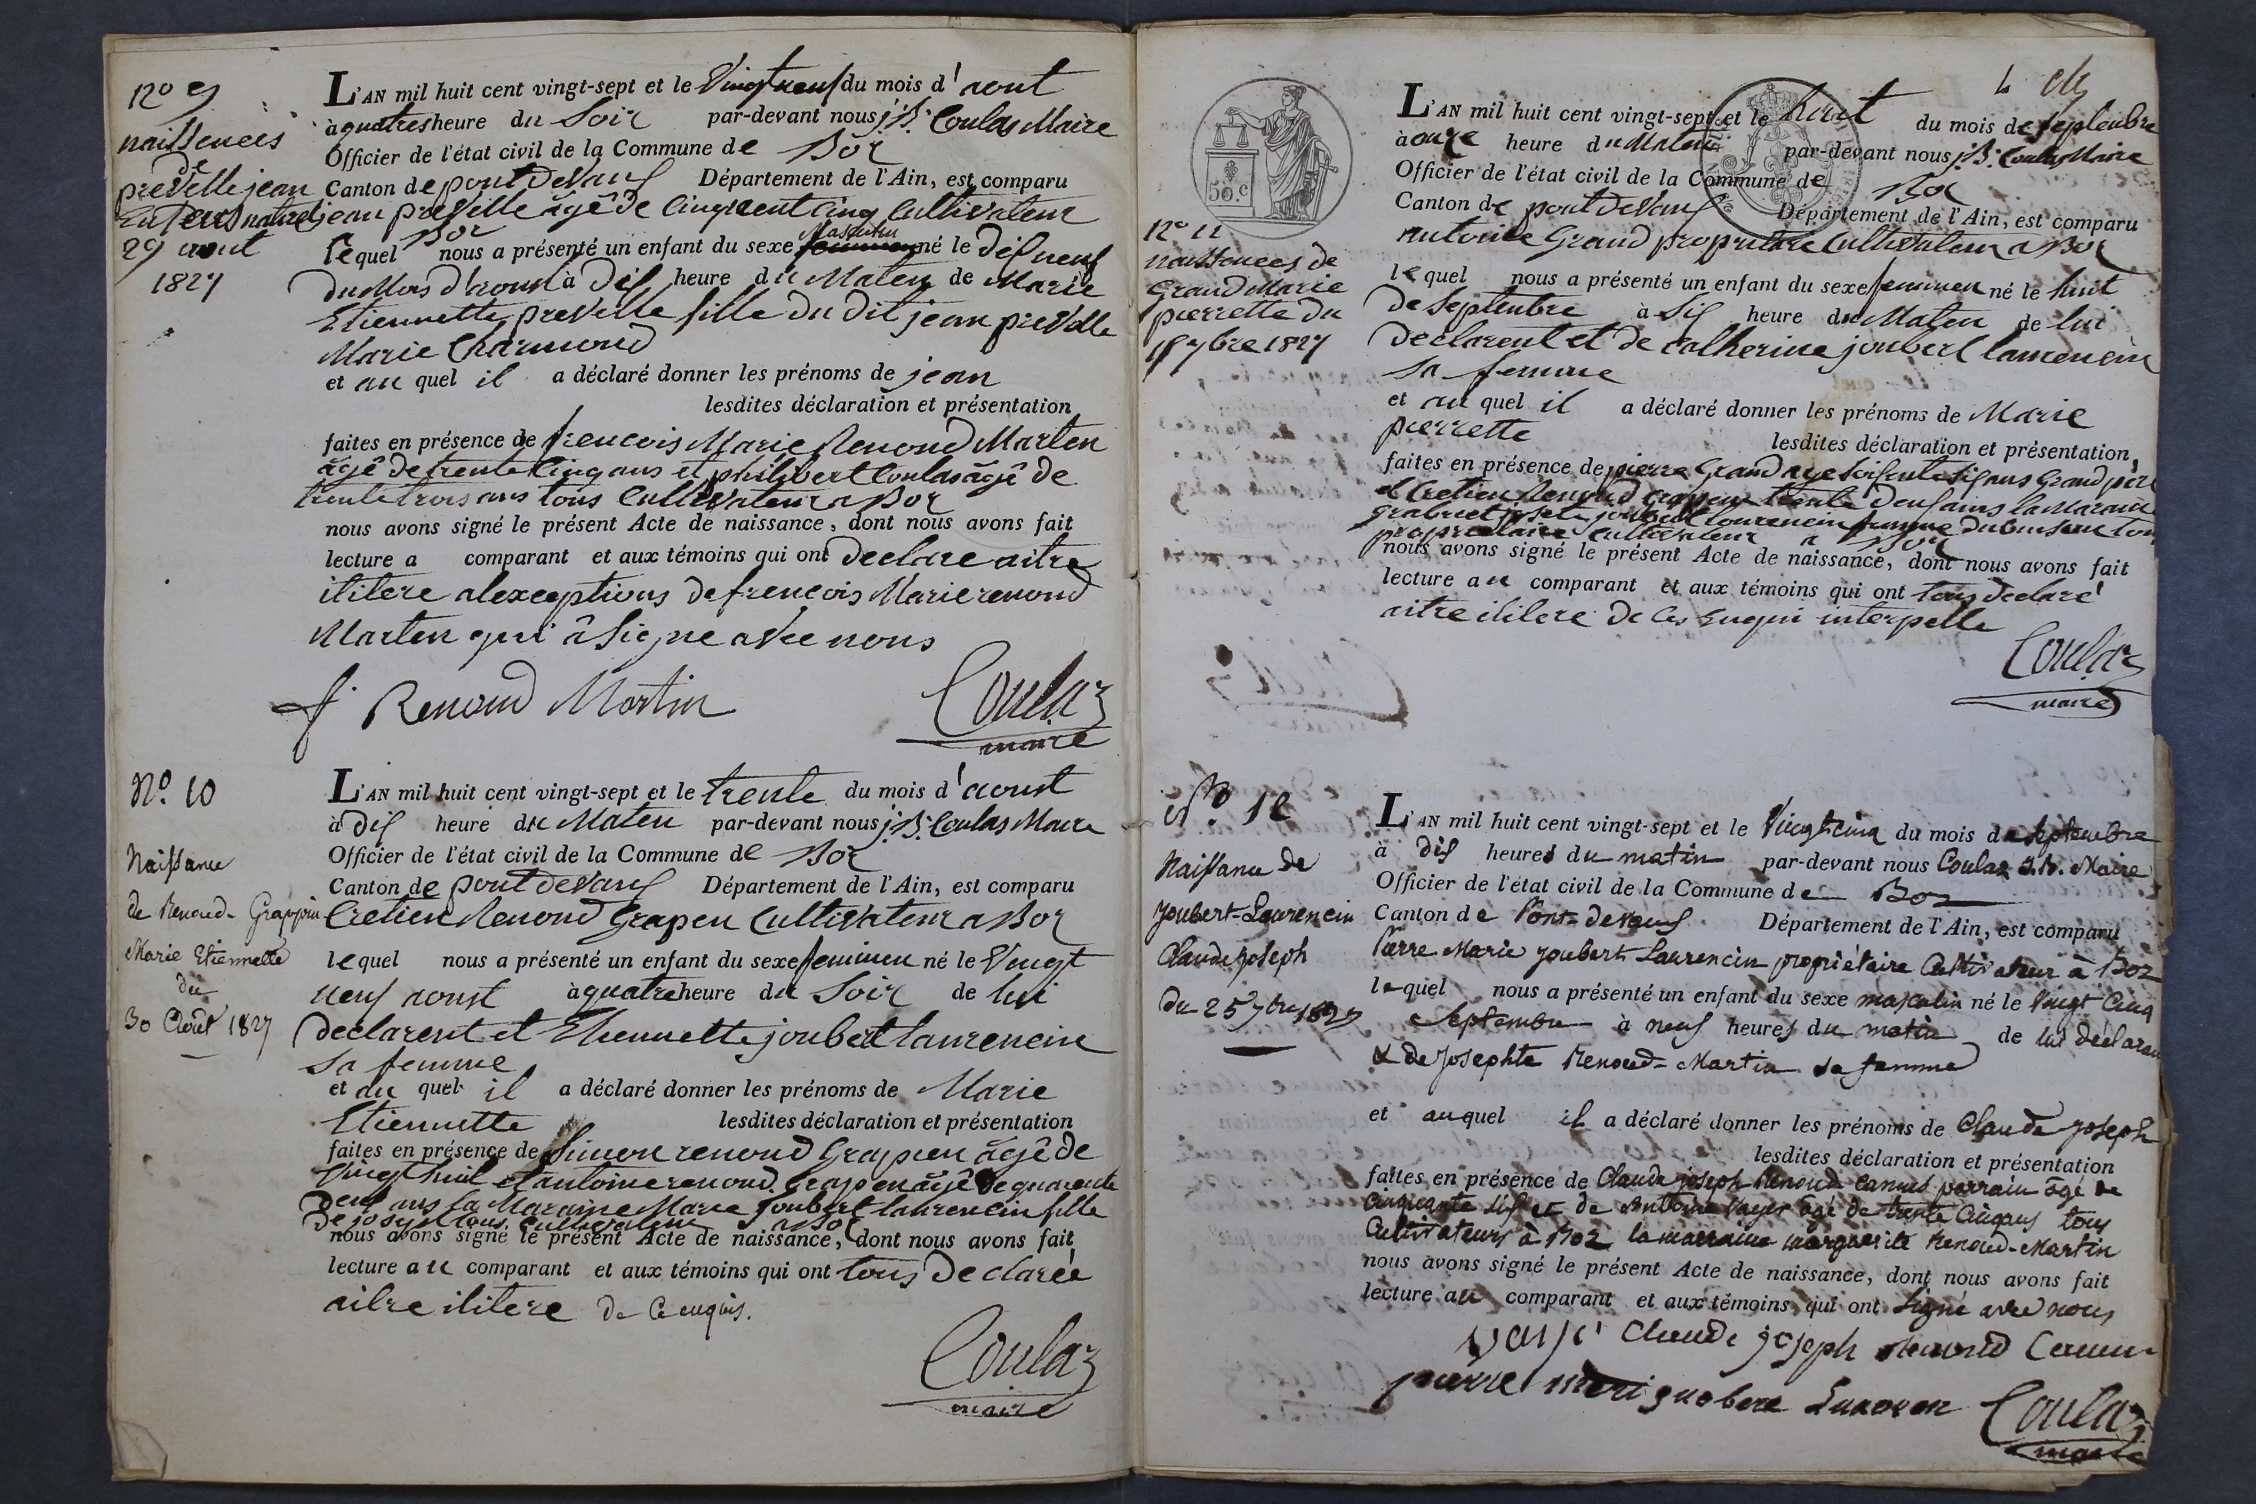 N° 9
naissences
de
preVelle jean
enfens naturel
29 aout
1827
L'AN mil huit cent vingt-sept et le Vingt neuf du mois d'aout
à quatres heure du Soir par-devant nous j. B. Coulas Maire
Officier de l'état civil de la Commune de Boz
Canton de pont deVaux Département de l'Ain, est comparu
jean preVelle âgê de Cinquent Cinq Cultivateur
a Boz
lequel nous a présenté un enfant du sexe Masculin né le dis neuf
du Mois d'aoust à Dis heure du Maten de Marie
Etiennette preVelle fille du dit jean preVelle
Marie Charnond
et au quel il a déclaré donner les prénoms de jean
lesdites déclaration et présentation
faites en présence de frencois Marie Renoud Marten
âgê de trente Cinq ans et philibert Coulas âgê de
trente trois ans tous Cultivateur a Boz
nous avons signé le présent Acte de naissance, dont nous avons fait
lecture a comparant et aux témoins qui ont declare aitre
ilitere alexceptions de frencois Marie renoud
Marten qui â signe avec nous
f Renoud Martin
Coulaz
maire
N°. 10
Naissance
de Renoud-Grappin
Marie Etiennette
du
30 Août 1827
L'AN mil huit cent vingt-sept et le trente du mois d'aoust
à Dis heure du Maten par-devant nous j. B. Coulas Maire
Officier de l'état civil de la Commune de Boz
Canton de pont deVaux Département de l'Ain, est comparu
Cretien Renoud Grapen Cultivateur a Boz
lequel nous a présenté un enfant du sexe feminen né le Vingt
neuf aoust à quatre heure du Soir de lui
declarent et Etiennette joubert laurencin
sa femme
et au quel il a déclaré donner les prénoms de Marie
Etiennette lesdites déclaration et présentation
faites en présence de Simon renoud Grapien âgê de
Vingt huit et antoine renoud Grapen âgê de quarente
deus ans la Maraine Marie joubert laurencin fille
de josep tous Cultivateur a Boz
nous avons signé le présent Acte de naissance, dont nous avons fait
lecture au comparant et aux témoins qui ont tous declareé
aitre ilitere de Ce enquis.
Coulaz
maire
50.c
N° 11
naissences de
Grand Marie
pierrette du
8 7bre 1827
L'AN mil huit cent vingt-sept et le huit du mois de septenbre
à onze heure du Maten par-devant nous j. B. Coulas Maire
Officier de l'état civil de la Commune de Boz
Canton de pont deVaux Département de l'Ain, est comparu
antoine Grand propritaire Cultivateur a Boz
lequel nous a présenté un enfant du sexe feminen né le huit
de Septenbre à Sis heure du Maten de lui
declarent et de catherine joubert laurencin
sa femme
et au quel il a déclaré donner les prénoms de Marie
pierrette lesdites déclaration et présentation,
faites en présence de pierre Grand age soisente sis ans Grand pere
et Cretien Renoud Grapien trente deus ans la Maraine
joubert laurencin femme
proprietaire Cultivateur a Boz
nous avons signé le présent Acte de naissance, dont nous avons fait
lecture au comparant et aux témoins qui ont tous declaré
aitre ilitere de Ces enquis interpelle
Coulaz
maire
N°. 12
Naissance de
Joubert-Laurencin
Claude Joseph
du 25 7bre 1827
L'AN mil huit cent vingt-sept et le Vingt cinq du mois de Septembre
à dis heures du matin par-devant nous Coulaz J. B. Maire
Officier de l'état civil de la Commune de Boz
Canton de Pont-devaux Département de l'Ain, est comparu
Pierre Marie Joubert Laurencin propriétaire Cultivateur à Boz
lequel nous a présenté un enfant du sexe masculin né le Vingt Cinq
Septembre à neuf heures du matin de lui déclarant
& de Josephte Renoud-Martin sa femme
et auquel il a déclaré donner les prénoms de Claude Joseph
lesdites déclaration et présentation
faites en présence de Claude joseph Renoud Cannus parrain âgé de
cinquante six et de Antoine Vayer âgé de trente Cinq ans tous
Cultivateurs à Boz la marraine marguerite Renoud-Martin
nous avons signé le présent Acte de naissance, dont nous avons fait
lecture au comparant et aux témoins, qui ont signé avec nous
Claude joseph Renoud Cannu
pierre mari
Coulaz
maire